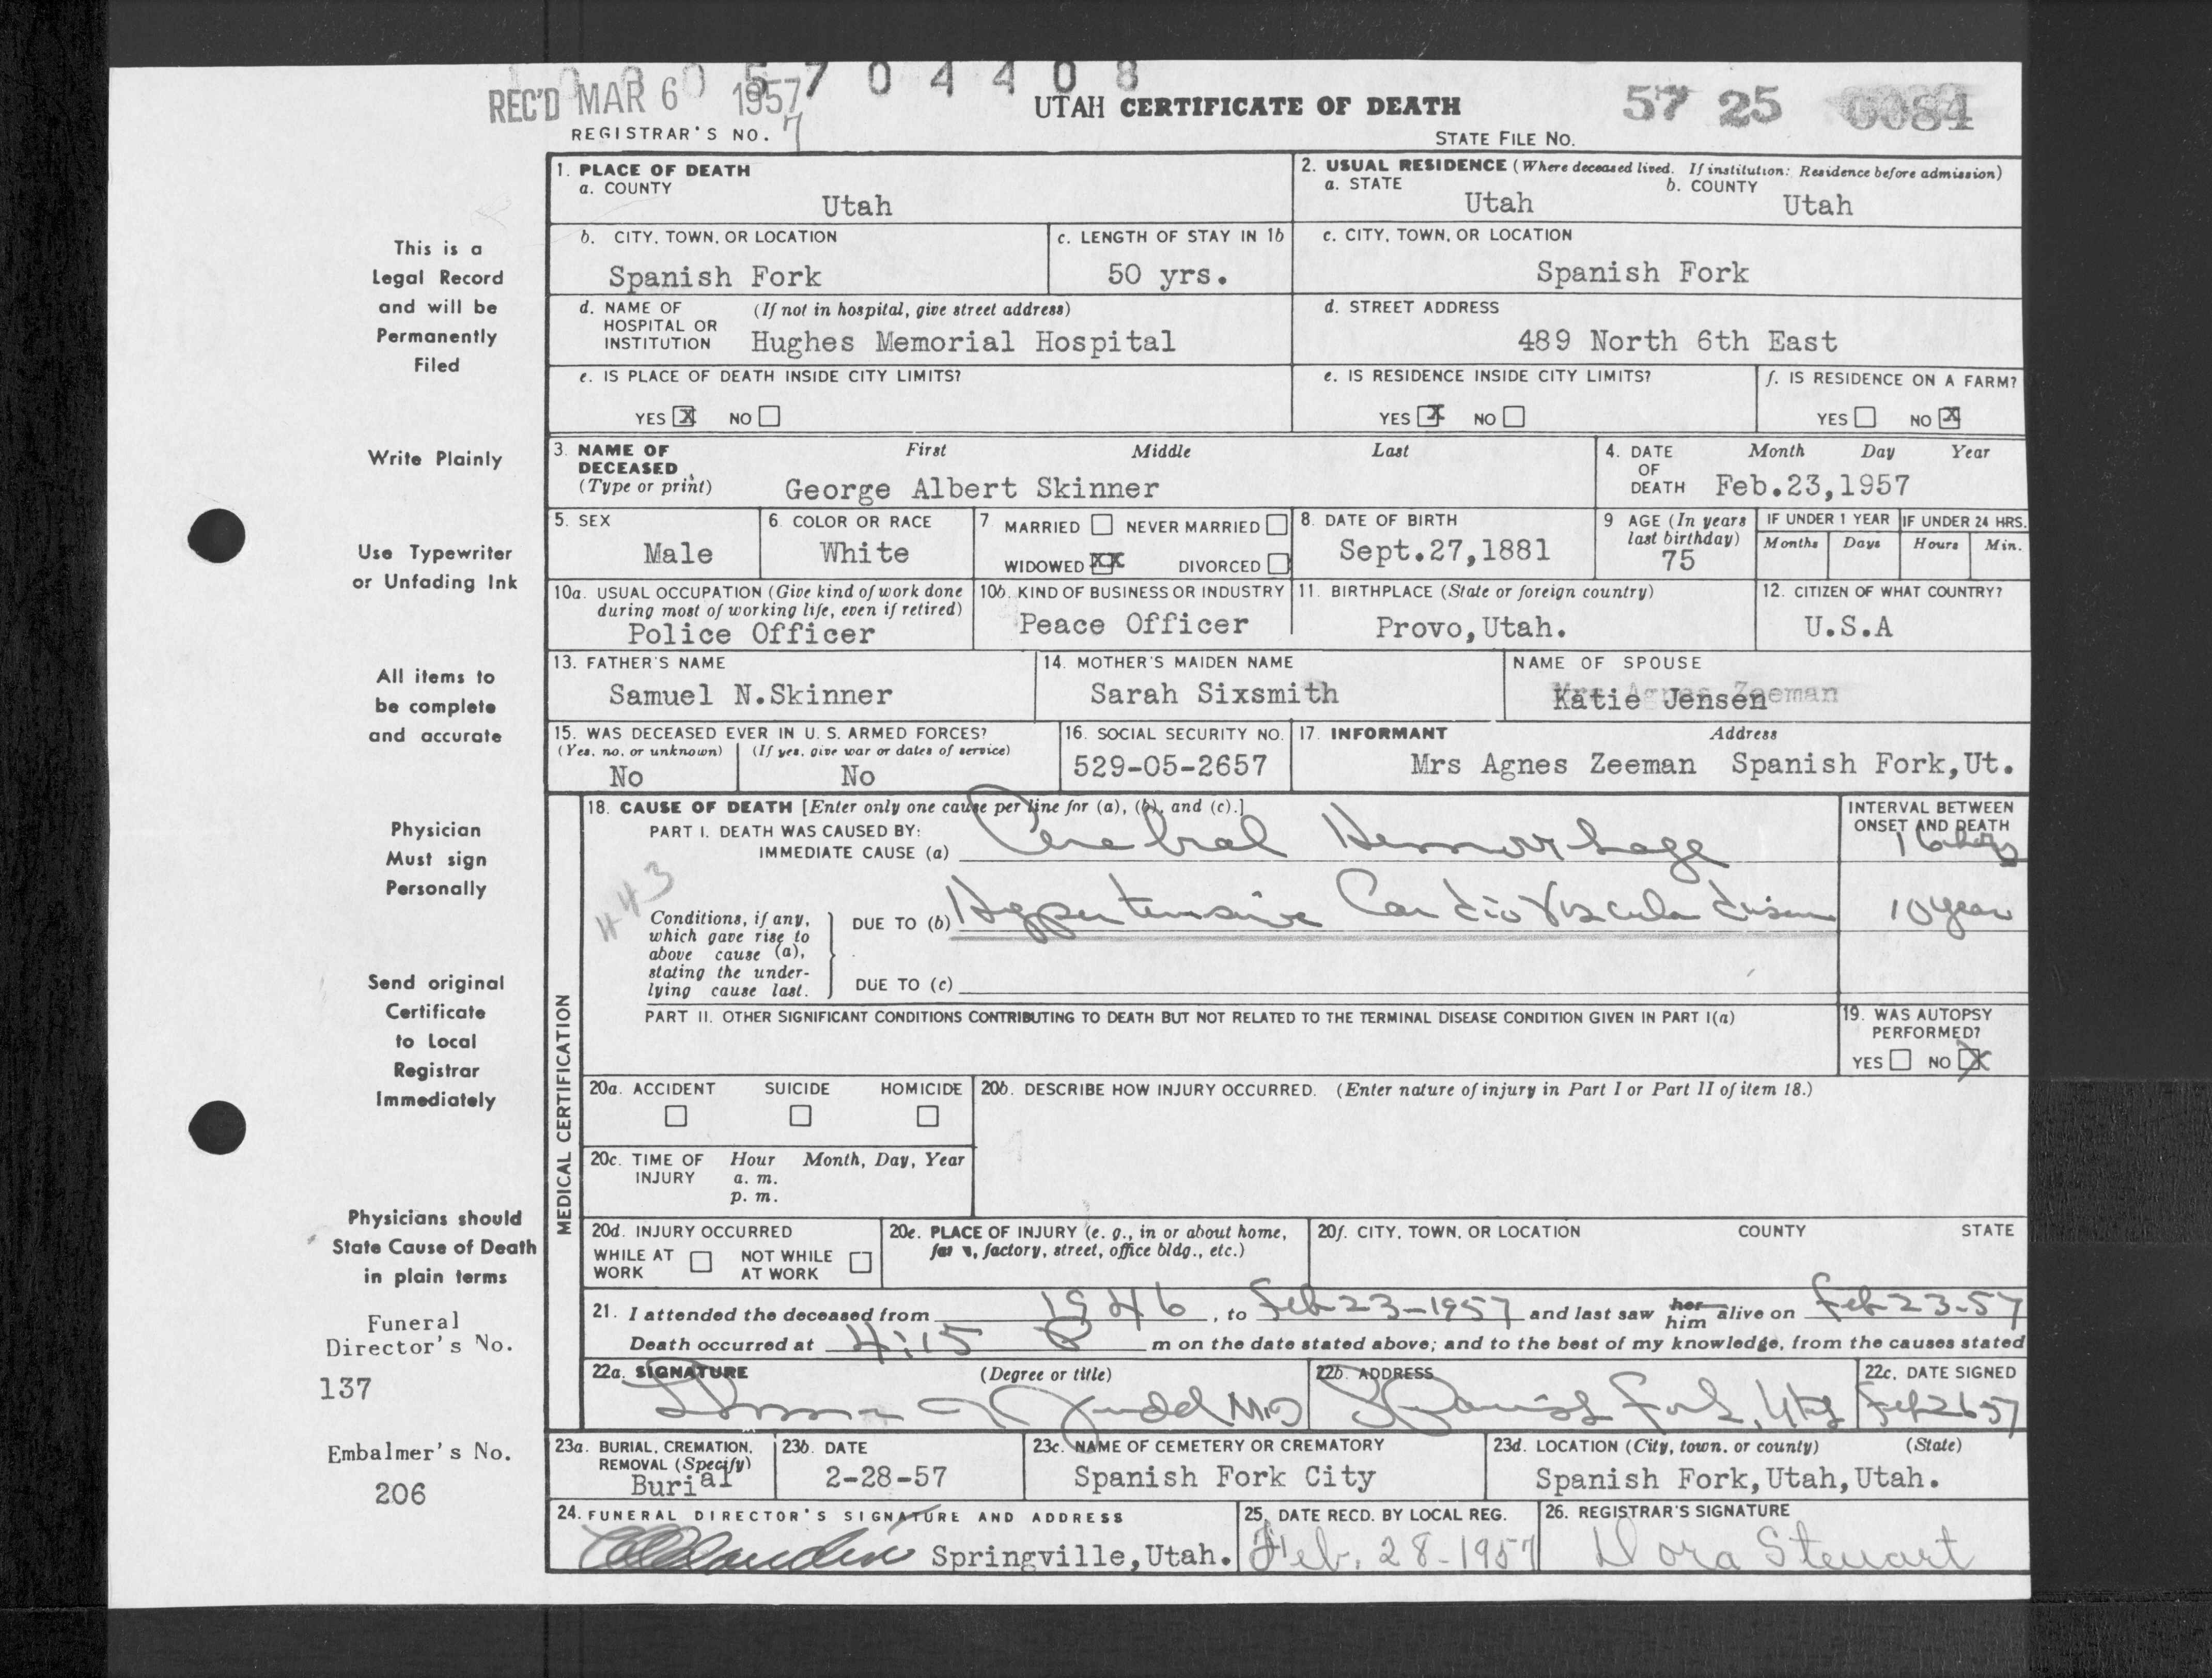 REC'D MAR 6 1957
5 7 0 4 4 0 8
UTAH CERTIFICATE OF DEATH
57 25 0084
REGISTRAR'S NO. 7
STATE FILE NO.
1. PLACE OF DEATH
a. COUNTY
Utah
2. USUAL RESIDENCE (Where deceased lived. If institution: Residence before admission)
a. STATE b. COUNTY
Utah Utah
b. CITY, TOWN, OR LOCATION c. LENGTH OF STAY IN 1b
Spanish Fork 50 yrs.
c. CITY, TOWN, OR LOCATION
Spanish Fork
d. NAME OF HOSPITAL OR INSTITUTION (If not in hospital, give street address)
Hughes Memorial Hospital
d. STREET ADDRESS
489 North 6th East
e. IS PLACE OF DEATH INSIDE CITY LIMITS?
YES X NO
e. IS RESIDENCE INSIDE CITY LIMITS?
YES X NO
f. IS RESIDENCE ON A FARM?
YES NO X
3. NAME OF DECEASED (Type or print) First Middle Last
George Albert Skinner
4. DATE OF DEATH Month Day Year
Feb.23,1957
5. SEX
Male
6. COLOR OR RACE
White
7. MARRIED NEVER MARRIED
WIDOWED XX DIVORCED
8. DATE OF BIRTH
Sept.27,1881
9 AGE (In years last birthday)
75
IF UNDER 1 YEAR IF UNDER 24 HRS.
Months Days Hours Min.
10a. USUAL OCCUPATION (Give kind of work done during most of working life, even if retired)
Police Officer
10b. KIND OF BUSINESS OR INDUSTRY
Peace Officer
11. BIRTHPLACE (State or foreign country)
Provo,Utah.
12. CITIZEN OF WHAT COUNTRY?
U.S.A
13. FATHER'S NAME
Samuel N.Skinner
14. MOTHER'S MAIDEN NAME
Sarah Sixsmith
NAME OF SPOUSE
Katie Jensen
15. WAS DECEASED EVER IN U. S. ARMED FORCES?
(Yes, no, or unknown) (If yes, give war or dates of service)
No No
16. SOCIAL SECURITY NO.
529-05-2657
17. INFORMANT Address
Mrs Agnes Zeeman Spanish Fork,Ut.
MEDICAL CERTIFICATION
18. CAUSE OF DEATH [Enter only one cause per line for (a), (b), and (c).]
PART I. DEATH WAS CAUSED BY:
IMMEDIATE CAUSE (a) Cerebral Hemorrhage
INTERVAL BETWEEN
ONSET AND DEATH
443
Conditions, if any, which gave rise to above cause (a), stating the underlying cause last.
DUE TO (b) Hypertensive Cardio Vascular disease 10 year
DUE TO (c)
PART II. OTHER SIGNIFICANT CONDITIONS CONTRIBUTING TO DEATH BUT NOT RELATED TO THE TERMINAL DISEASE CONDITION GIVEN IN PART I(a)
19. WAS AUTOPSY PERFORMED?
YES NO X
20a. ACCIDENT SUICIDE HOMICIDE
20b. DESCRIBE HOW INJURY OCCURRED. (Enter nature of injury in Part I or Part II of item 18.)
20c. TIME OF INJURY Hour Month, Day, Year
a. m.
p. m.
20d. INJURY OCCURRED
WHILE AT WORK NOT WHILE AT WORK
20e. PLACE OF INJURY (e. g., in or about home, farm, factory, street, office bldg., etc.)
20f. CITY, TOWN, OR LOCATION COUNTY STATE
21. I attended the deceased from 1946, to Feb 23-1957 and last saw her him alive on Feb 23-57
Death occurred at 4:15 P m on the date stated above; and to the best of my knowledge, from the causes stated
22a. SIGNATURE (Degree or title)
Judd M.D
22b. ADDRESS
Spanish Fork, Utah
22c. DATE SIGNED
Feb 26 57
23a. BURIAL, CREMATION, REMOVAL (Specify)
Burial
23b. DATE
2-28-57
23c. NAME OF CEMETERY OR CREMATORY
Spanish Fork City
23d. LOCATION (City, town, or county) (State)
Spanish Fork,Utah,Utah.
24. FUNERAL DIRECTOR'S SIGNATURE AND ADDRESS
Springville,Utah.
25. DATE RECD. BY LOCAL REG.
Feb. 28-1957
26. REGISTRAR'S SIGNATURE
Dora Stewart
This is a
Legal Record
and will be
Permanently
Filed
Write Plainly
Use Typewriter
or Unfading Ink
All items to
be complete
and accurate
Physician
Must sign
Personally
Send original
Certificate
to Local
Registrar
Immediately
Physicians should
State Cause of Death
in plain terms
Funeral
Director's No.
137
Embalmer's No.
206